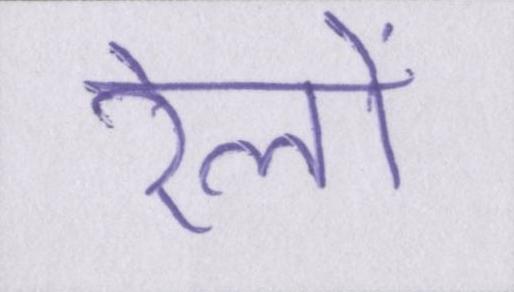 रेलों